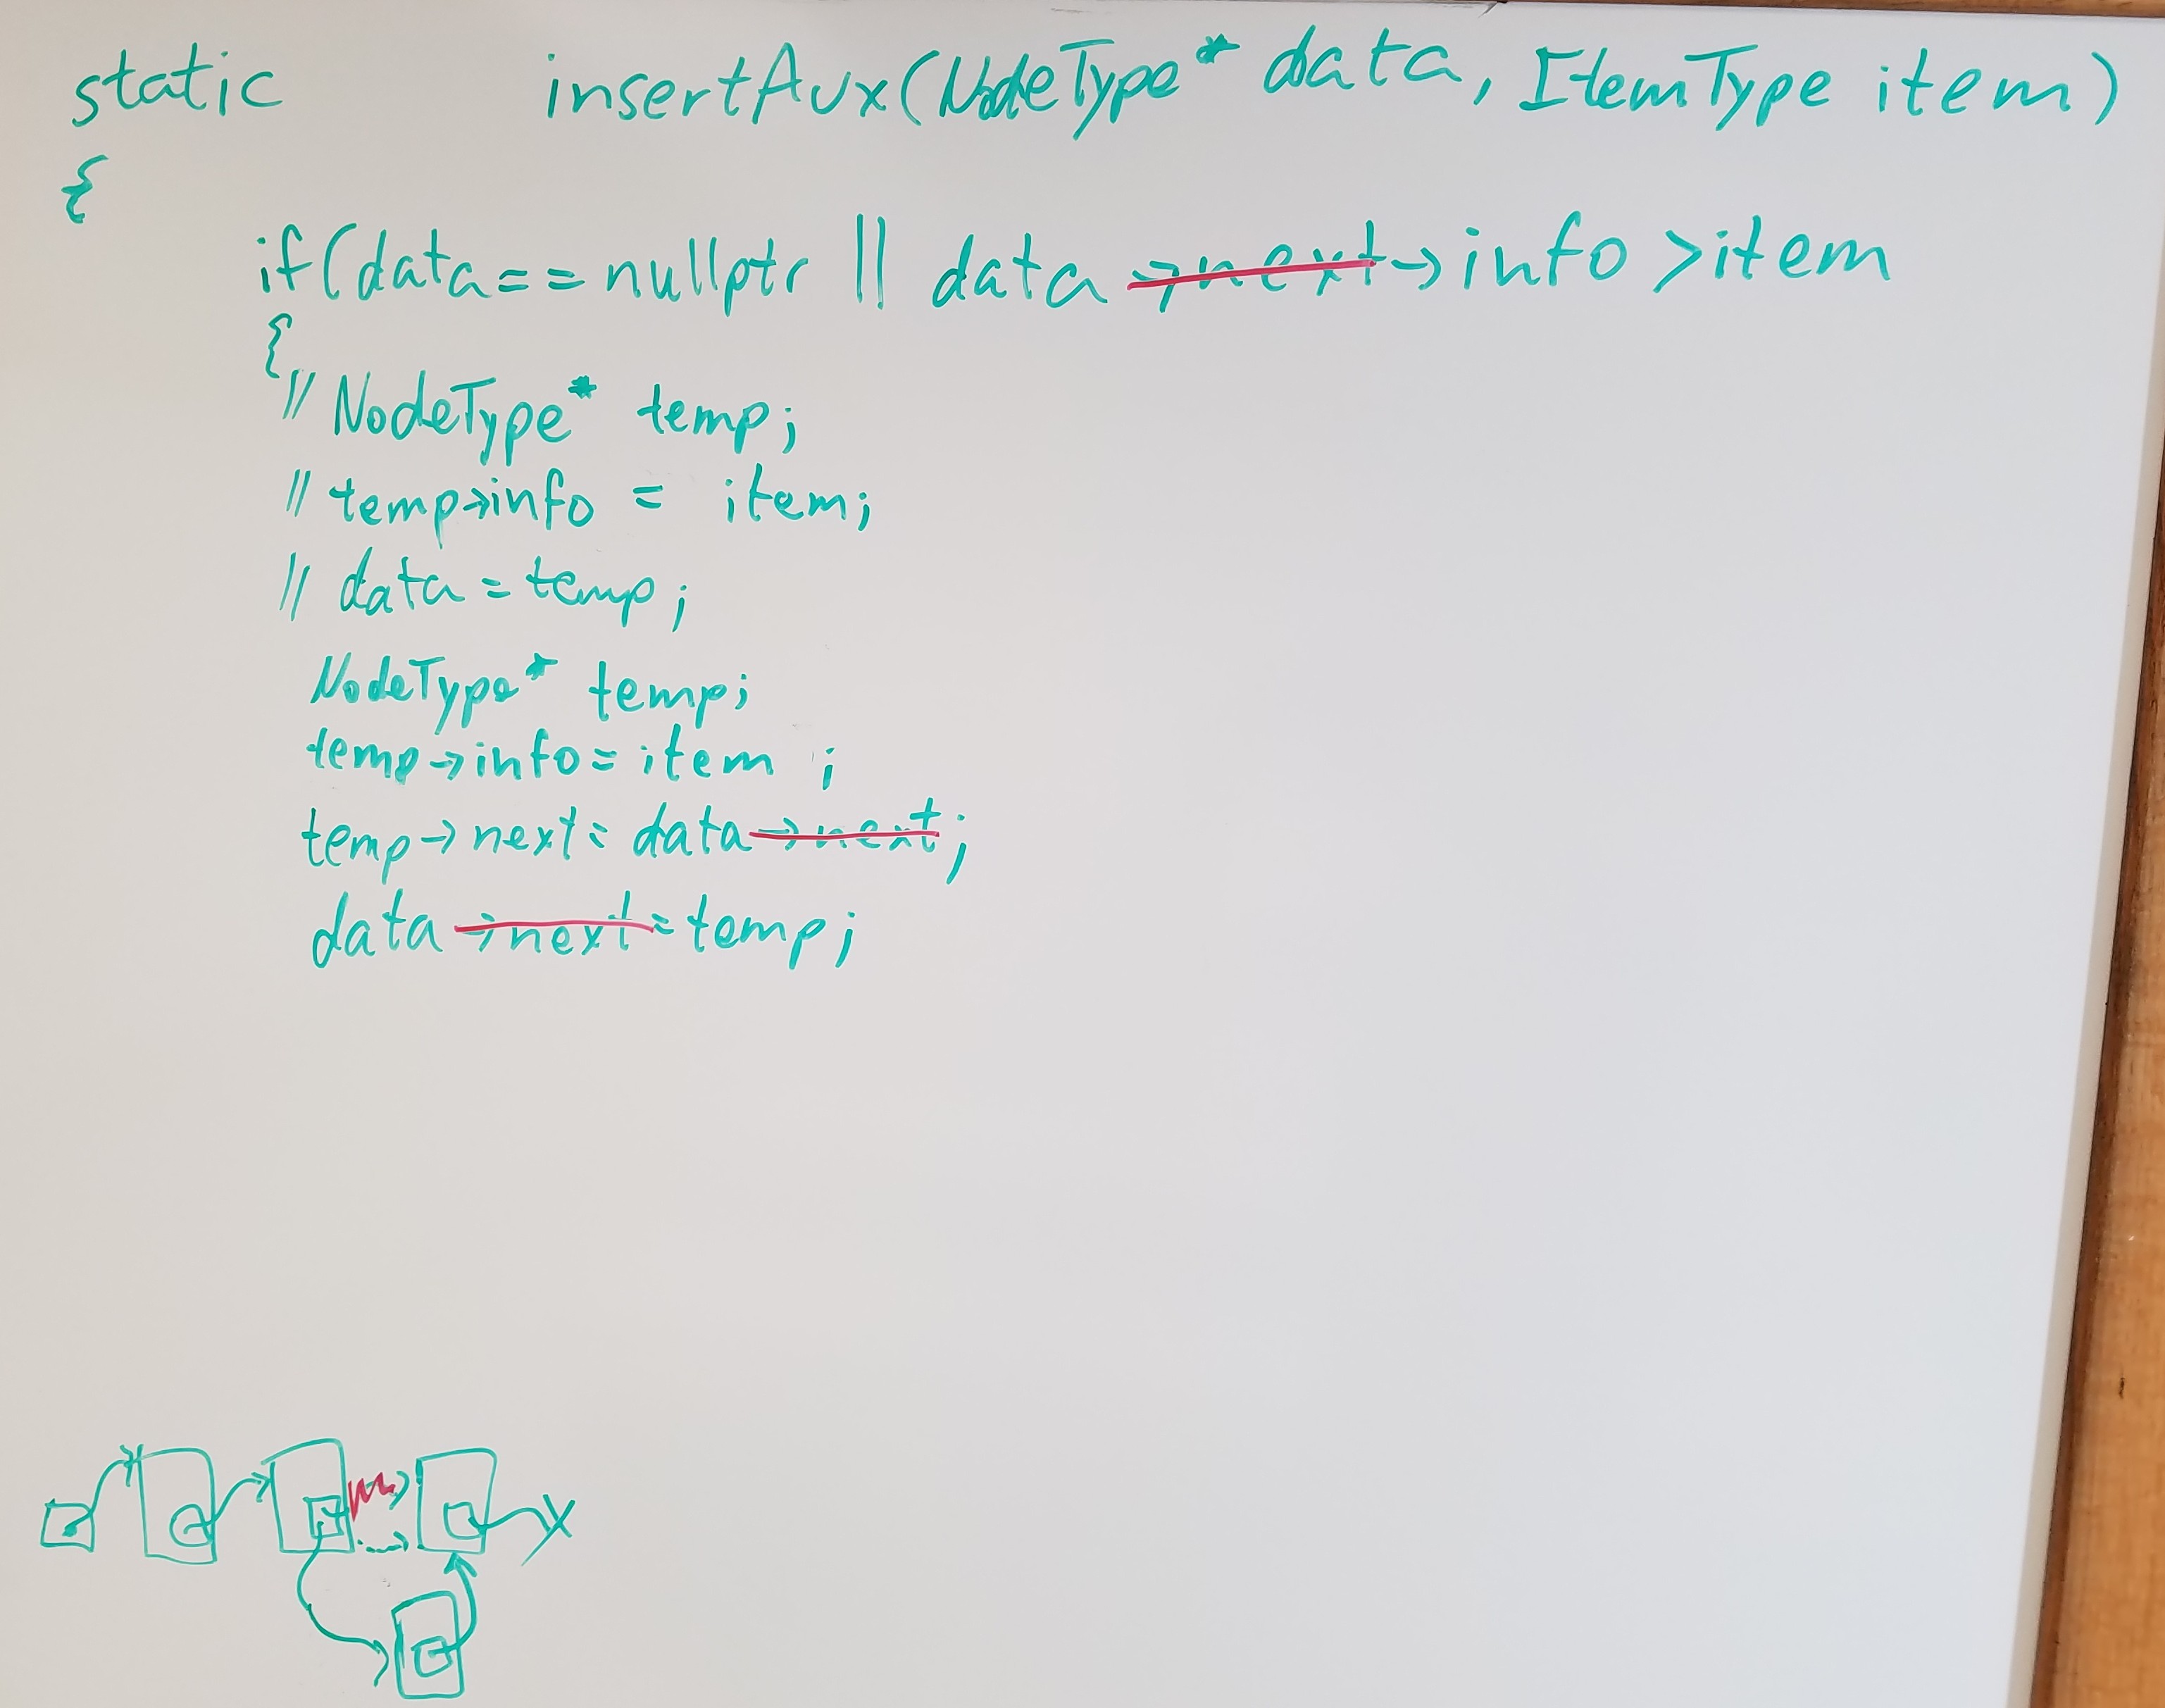 static insertAux(NodeType* data, ItemType item)
{
if(data==nullptr || data->next->info >item
{
// NodeType* temp;
// temp->info = item;
// data = temp;
NodeType* temp;
temp->info = item ;
temp->next = data->next;
data->next = temp;